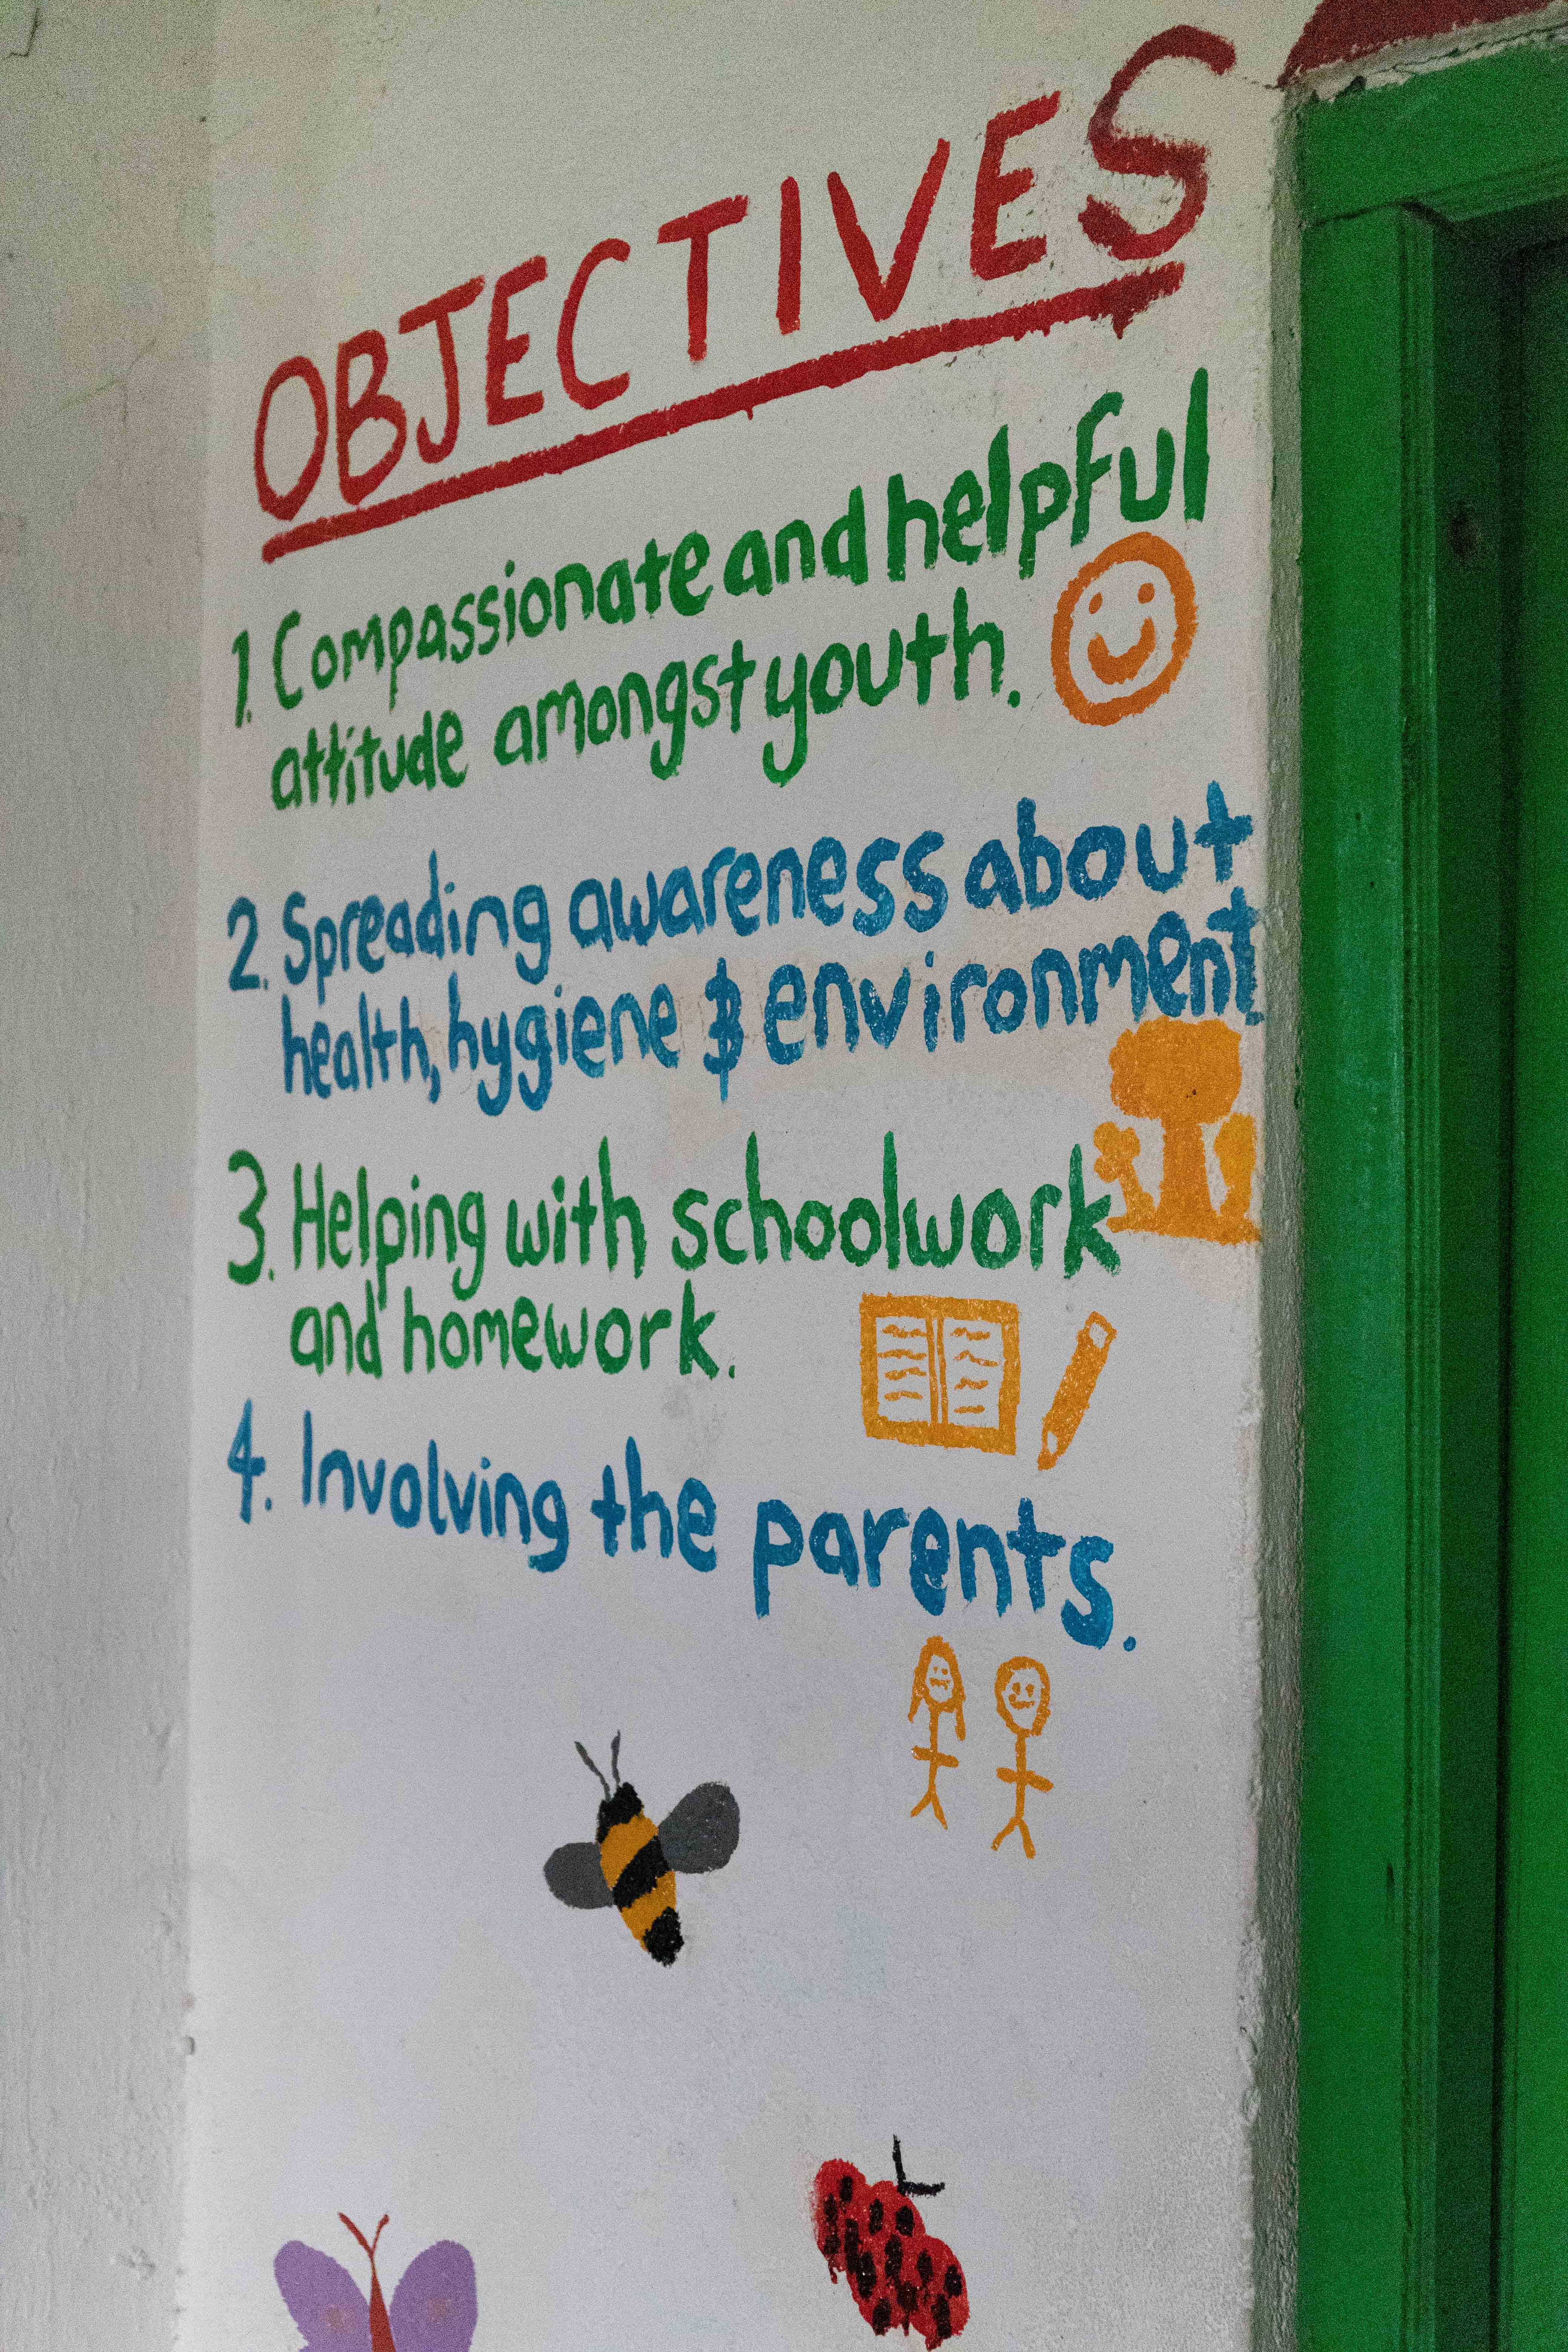 OBJECTIVES
1. Compassionate and helpful
attitude amongst youth.
2. Spreading awareness about
health, hygiene & environment
3. Helping with schoolwork
and homework.
4. Involving the parents.